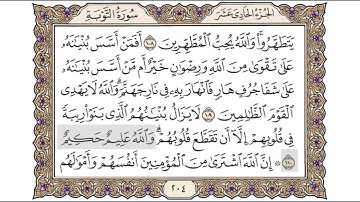 الجزء الحادي عشر سورة التوبة
يَتَطَهَّرُوا۟ وَٱللَّهُ يُحِبُّ ٱلْمُطَّهِّرِينَ ١٠٨ أَفَمَنْ أَسَّسَ بُنْيَـٰنَهُۥ
عَلَىٰ تَقْوَىٰ مِنَ ٱللَّهِ وَرِضْوَٰنٍ خَيْرٌ أَم مَّنْ أَسَّسَ بُنْيَـٰنَهُۥ
عَلَىٰ شَفَا جُرُفٍ هَارٍ فَٱنْهَارَ بِهِۦ فِى نَارِ جَهَنَّمَ وَٱللَّهُ لَا يَهْدِى
ٱلْقَوْمَ ٱلظَّـٰلِمِينَ ١٠٩ لَا يَزَالُ بُنْيَـٰنُهُمُ ٱلَّذِى بَنَوْا۟ رِيبَةً
فِى قُلُوبِهِمْ إِلَّآ أَن تَقَطَّعَ قُلُوبُهُمْ وَٱللَّهُ عَلِيمٌ حَكِيمٌ
١١٠ ۞ إِنَّ ٱللَّهَ ٱشْتَرَىٰ مِنَ ٱلْمُؤْمِنِينَ أَنفُسَهُمْ وَأَمْوَٰلَهُم
٢٠٤